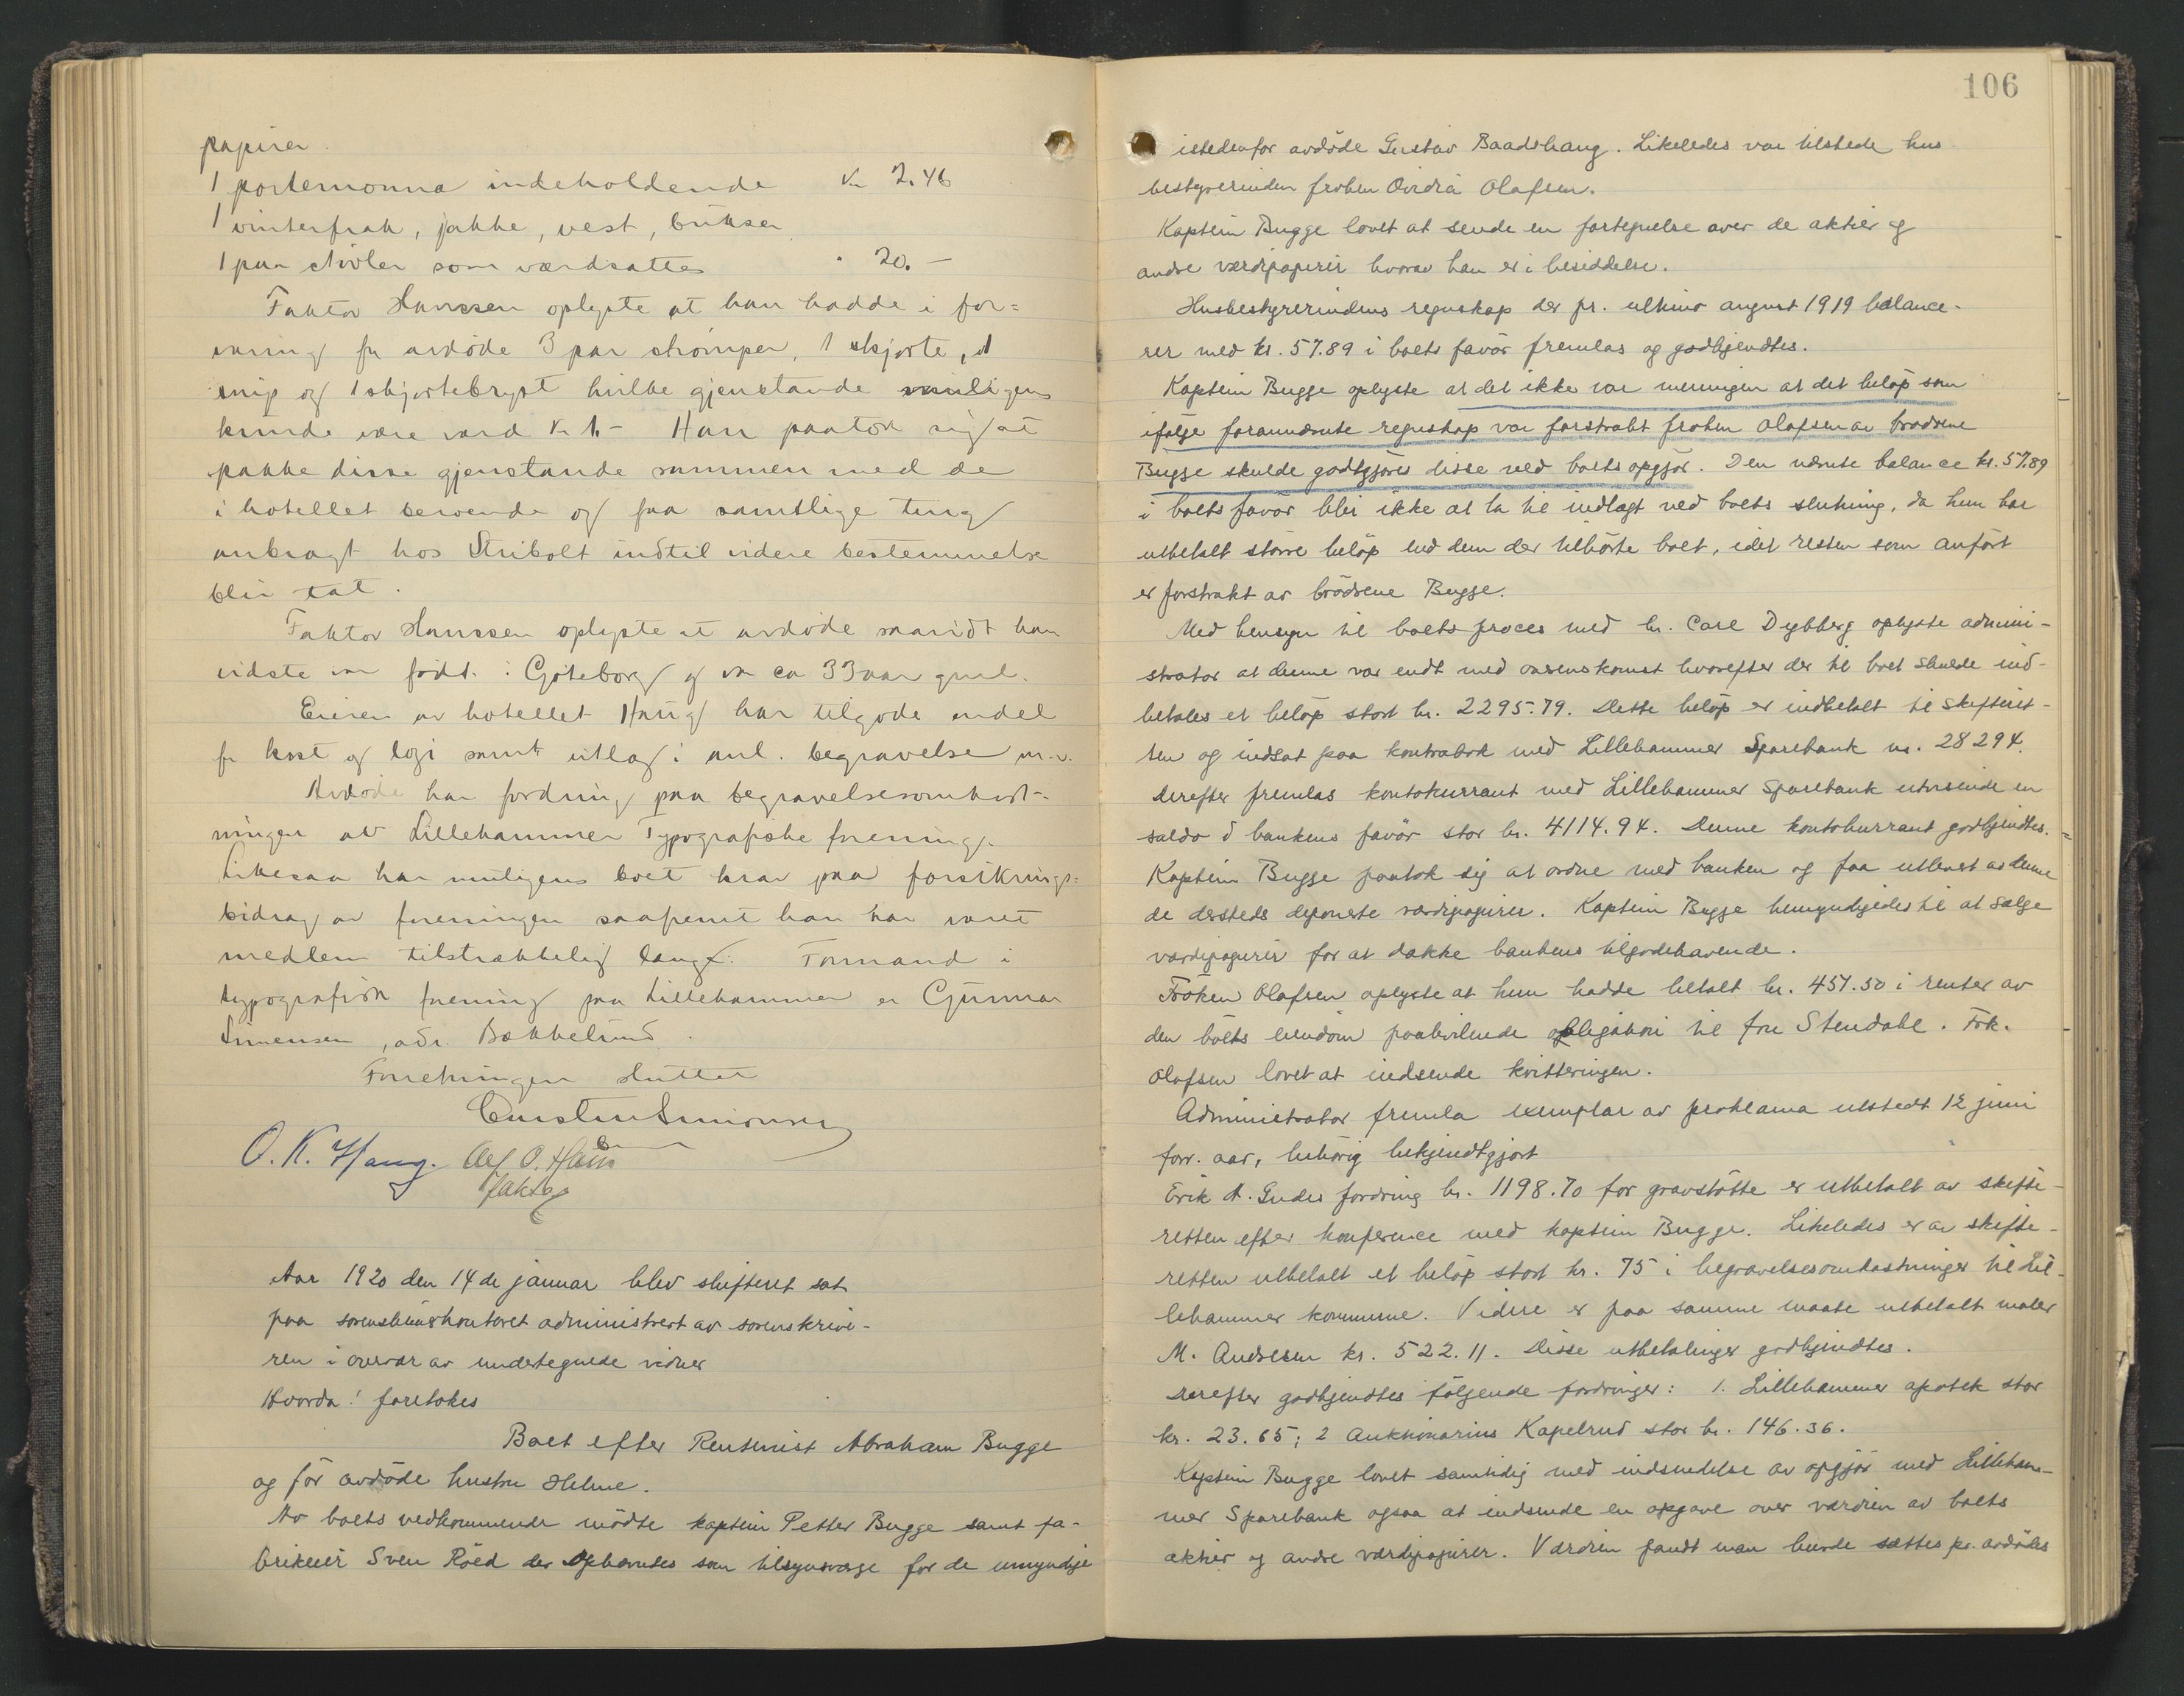 papirer.
1 portemonna indeholdende Kr 2.46
1 vinterfrak, jakke, vest, bukser
1 par støvler som værdsattes " 20.–
Faktor Hanssen oplyste at han hadde i for=
varing for avdøde 3 par strömper, 1 skjorte, 1
snip og 1 skjortebryst hvilke gjenstande muligens
kunde være værd Kr 1.– Han paatok sig at
pakke disse gjenstande sammen med de
i hotellet beroende og faa samtlige ting
anbragt hos Stribolt indtil videre bestemmelse
blir tat.
Faktor Hanssen oplyste at avdøde saavidt han
vidste var födt i Göteborg og var ca 33 aar gml.
Eieren av hotellet Haug har tilgode endel
for kost og logi samt utlæg i anl. begravelse m.v.
Avdøde har fordring paa begravelsesomkost-
ninger av Lillehammer Typografiske forening.
Likesaa har muligens boet krav paa forsikrings=
bidrag av foreningen saafremt han har været
medlem tilstrækkelig længe. Formand i
typografisk forening paa Lillehammer er Gunnar
Simensen, adr. Bækkelund.
Forretningen sluttet
O. K. Haug. Alf O. Hans
faktor
Aar 1920 den 14de januar blev skifteret sat
paa sorenskriverkontoret administrert av sorenskrive-
ren i overvær av undertegnede vidner
Hvorda! foretokes
Boet efter Rentenist Abraham Bugge
og før avdøde hustru Helene.
For boets vedkommende mødte kaptein Petter Bugge samt fa-
brikeier Sven Röed der opnævntes som tilsynsværge for de umyndige
106
istedenfor avdöde Gustav Baadshaug. Likeledes var tilstede hus
bestyrerinden fröken Ovidia Olafsen.
Kaptein Bugge lovet at sende en fortegnelse over de aktier og
andre værdipapirer hvorav han er i besiddelse.
Husbestyrerindens regnskap der pr. ultimo august 1919 balance-
rer med kr. 57.89 i boets favör fremlas og godkjendtes.
Kaptein Bugge oplyste at det ikke var meningen at det belöp som
ifölge forannævnte regnskap var forstrakt fröken Olafsen av brödrene
Bugge skulde godtgjöres disse ved boets opgjör. Den nævnte balance kr. 57.89
i boets favör blir ikke at ta til indtægt ved boets slutning, da hun har
utbetalt större belöp end dem der tilhörte boet, idet resten som anfört
er forstrakt av brödrene Bugge.
Med hensyn til boets proces med hr. Carl Dybberg oplyste admini-
strator at denne var endt med overenskomst hvorefter der til boet skulde ind-
betales et belöp stort kr. 2295.79. Dette belöp er indbetalt til skifteret-
ten og indsat paa kontrabok med Lillehammer Sparebank nr. 28294.
Derefter fremlas kontokurrant med Lillehammer Sparebank utvisende en
saldo i bankens favör stor kr. 4114.94. Denne kontokurrant godkjendtes.
Kaptein Bugge paatok sig at ordne med banken og faa utlevert av denne
de dersteds deponerte værdipapirer. Kaptein Bugge bemyndigedes til at sælge
værdipapirer for at dække bankens tilgodehavende.
Fröken Olafsen oplyste at hun hadde betalt kr. 457.50 i renter av
den boets eiendom paahvilende obligation til fru Stendahl. Frk.
Olafsen lovet at indsende kvitteringen.
Administrator fremla exemplar av proklama utstedt 12 juni
forr. aar, behörig bekjendtgjort
Erik A. Gudes fordring kr. 1198.70 for gravstötte er utbetalt av skifte-
retten efter konference med kaptein Bugge. Likeledes er av skifte-
retten utbetalt et belöp stort kr. 75 i begravelsesomkostninger til Lil-
lehammer kommune. Videre er paa samme maate utbetalt maler
M. Andresen kr. 522.11. Disse utbetalinger godkjendtes.
Derefter godkjendtes fölgende fordringer: 1. Lillehammer apotek stor
kr. 23.65; 2 Auktionarius Kapelrud stor kr. 146.36.
Kaptein Bugge lovet samtidig med indsendelse av opgjör med Lilleham-
mer Sparebank ogsaa at indsende en opgave over værdien av boets
aktier og andre værdipapirer. Værdien fandt man burde sættes pr. avdödes